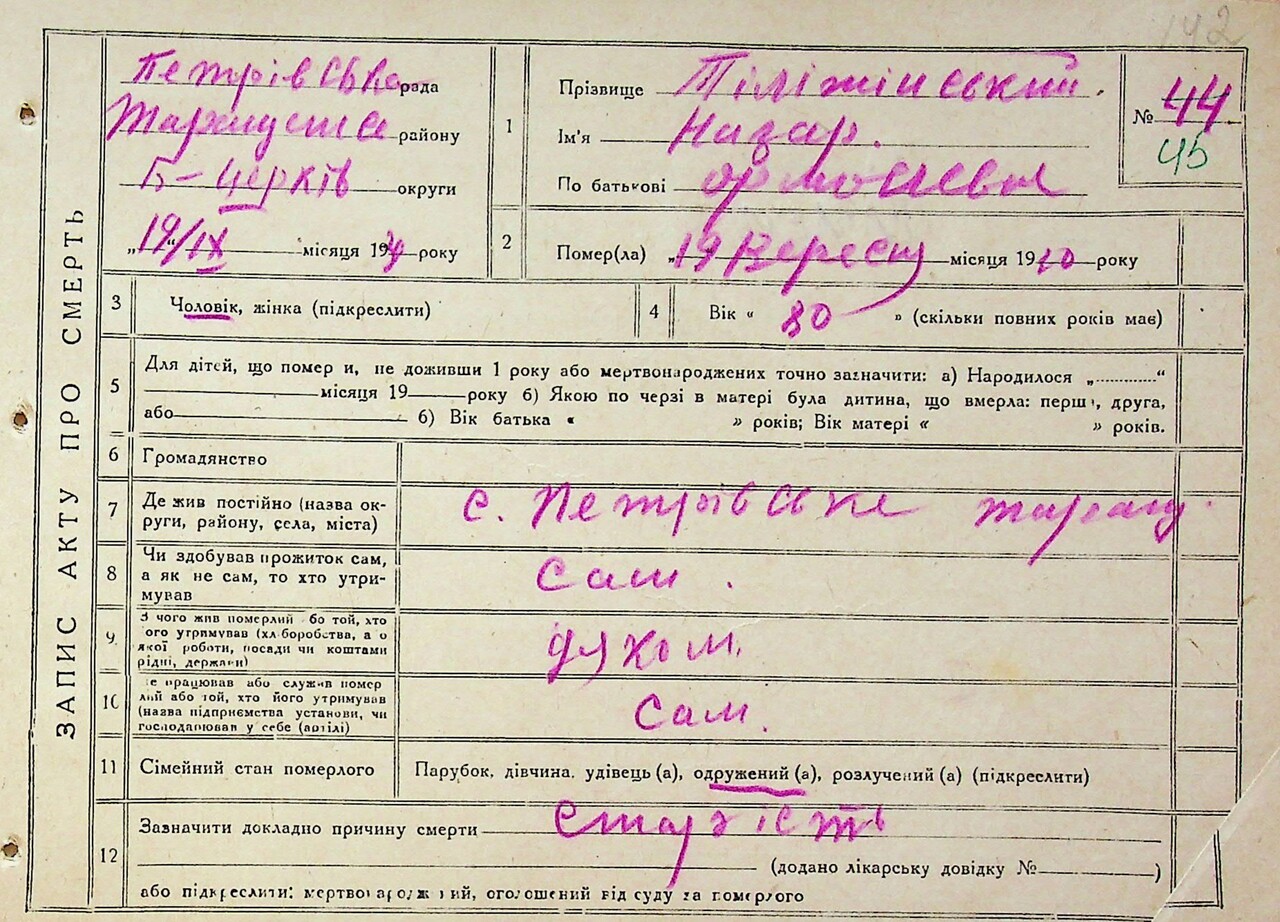 142
ЗАПИС АКТУ ПРО СМЕРТЬ
Петрівська рада
району
Б-Церків округи
„19/IX“ місяця 19 року
1
Прізвище Тіліжінський.
Ім'я Назар.
По батькові
№ 44
45
2
Помер(ла) „19 Вересня місяця 19 року
3
Чоловік, жінка (підкреслити)
4
Вік « 80 » (скільки повних років має)
5
Для дітей, що помер и, не доживши 1 року або мертвонароджених точно зазначити: а) Народилося „............“
місяця 19 року б) Якою по черзі в матері була дитина, що вмерла: перша, друга,
або б) Вік батька « » років; Вік матері « » років.
6
Громадянство
7
Де жив постійно (назва ок-
руги, району, села, міста)
с. Петрівське
8
Чи здобував прожиток сам,
а як не сам, то хто утри-
мував
Сам.
9.
З чого жив померлий або той, хто
його утримував (хліборобства, або
якої роботи, посади чи коштами
рідні, держави)
дяком.
10
Де працював або служив помер
лий або той, хто його утримував
(назва підприємства установи, чи
господарював у себе (артілі)
Сам.
11
Сімейний стан померлого
Парубок, дівчина. удівець (а), одружений (а), розлучений (а) (підкреслити)
12
Зазначити докладно причину смерти Старість
(додано лікарську довідку № )
або підкреслити: мертвонароджений, оголошений від суду за померлого